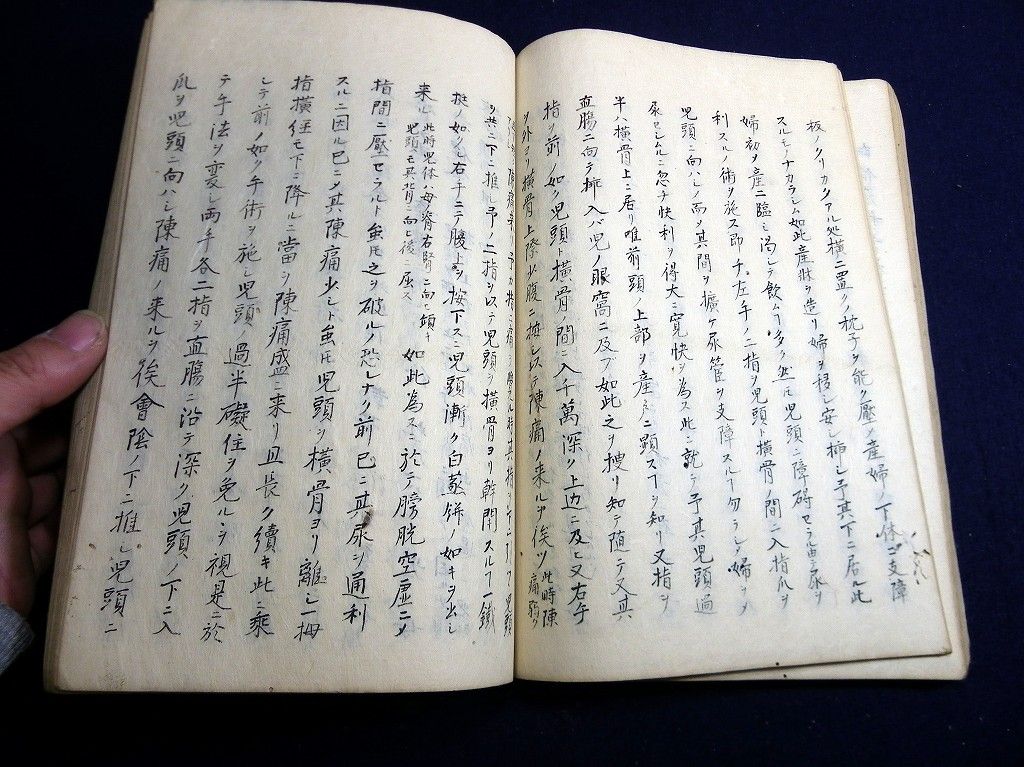 板ノクリカタアル処横ニ置クノ枕子ヲ能ク壓シ産婦ノ下体ニ支障
スルモノナカラシム如此産牀ヲ造リ婦ヲ安シ挿シ予其下ニ居ル此
婦初ヲ産ニ臨ミ渇シテ飲ムヿ多ク然モ児頭ニ障碍セラル由テ尿ヲ
利スルノ術ヲ施ス即チ左手ノ二指ヲ児頭ト横骨ノ間ニ入指爪ヲ
児頭ニ向ハシメ而メ其間ヲ擴ケ尿管ヲ支障スルヿ勿ラシメ婦ヲメ
尿セシムルニ忽チ快利ヲ得大ニ寛快ヲ為ス此ニ就テ予其児頭過
半ハ横骨上ニ居リ唯前頭ノ上部ヲ産戸ニ顕スヿヲ知リ又指ヲ
直腸ニ向テ挿入ハ児ノ眼窩ニ及ブ如此之ヲ捜リ知テ随テ又其
指ヲ前ノ如ク児頭ト横骨ノ間ニ入千萬深ク上辺ニ及ヒ又右手
ヲ外ヨリ横骨上際少腹ニ按シ以テ陳痛ノ来ルヲ俟ツ此時陳痛弱ヲ
ヲ共ニ下ニ推シ予ノ二指ヲ以テ児頭ヲ横骨ヨリ幹開スルヿ一鐵
挺ノ如クシ右手ニテ腹上ヲ按下ス児頭漸ク白蒸餅ノ如キヲ出シ
来ル此時児体ハ母脊右腎ニ向ヒ頭ヲ児頭モ其背ニ向ヒ後ニ屈ス如此為スニ於テ膀胱空虚ニメ
指間ニ壓セラルト虽モ之ヲ破ルノ恐レナク前已ニ其尿ヲ通利
スルニ因ル已ニメ其陳痛少シト虽モ児頭ヲ横骨ヨリ離レ一拇
指横径モ下ニ降ルニ當ヲ陳痛盛ニ来リ且長ク續キ此ニ乘
シテ前ノ如ク手術ヲ施シ児頭過半礙住ヲ免ルヲ視是ニ於
テ手法ヲ変シ両手各二指ヲ直腸ニ沿テ深ク児頭ノ下ニ入
爪ヲ児頭ニ向ハシ陳痛ノ来ルヲ俟會陰ノ下ニ推シ児頭ニ